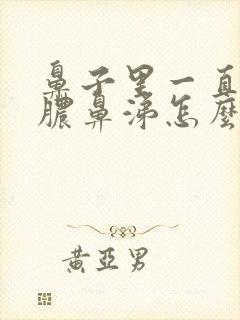 鼻子里一直
膿鼻涕怎麼
黄亞男